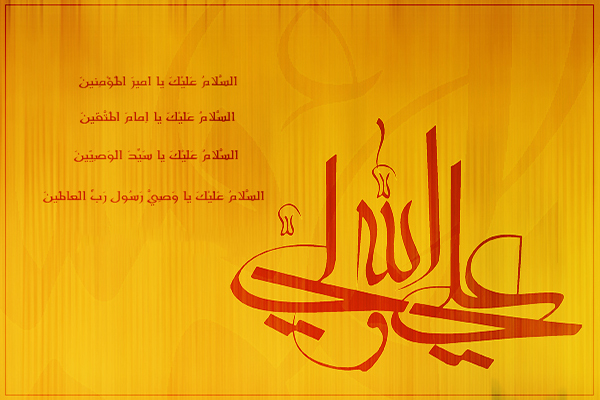 السَّلامُ عَلَيْكَ يا اميرَ المُؤْمِنينَ
السَّلامُ عَلَيْكَ يا اِمامَ المُتَّقينَ
السَّلامُ عَلَيْكَ يا سَيِّدَ الوَصِيّينَ
السَّلامُ عَلَيْكَ يا وَصِيَّ رَسُولِ رَبِّ العالمينَ
علي ولي الله